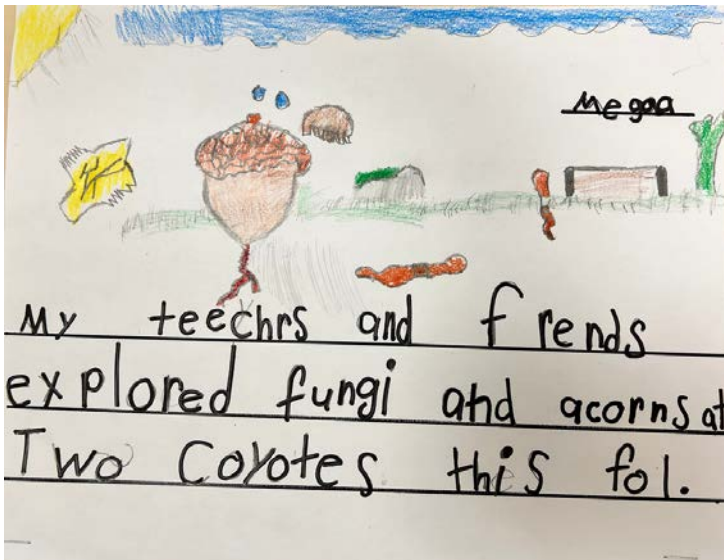 Megaa
My teechrs and frends
explored fungi and acorns at
Two Coyotes this fol.